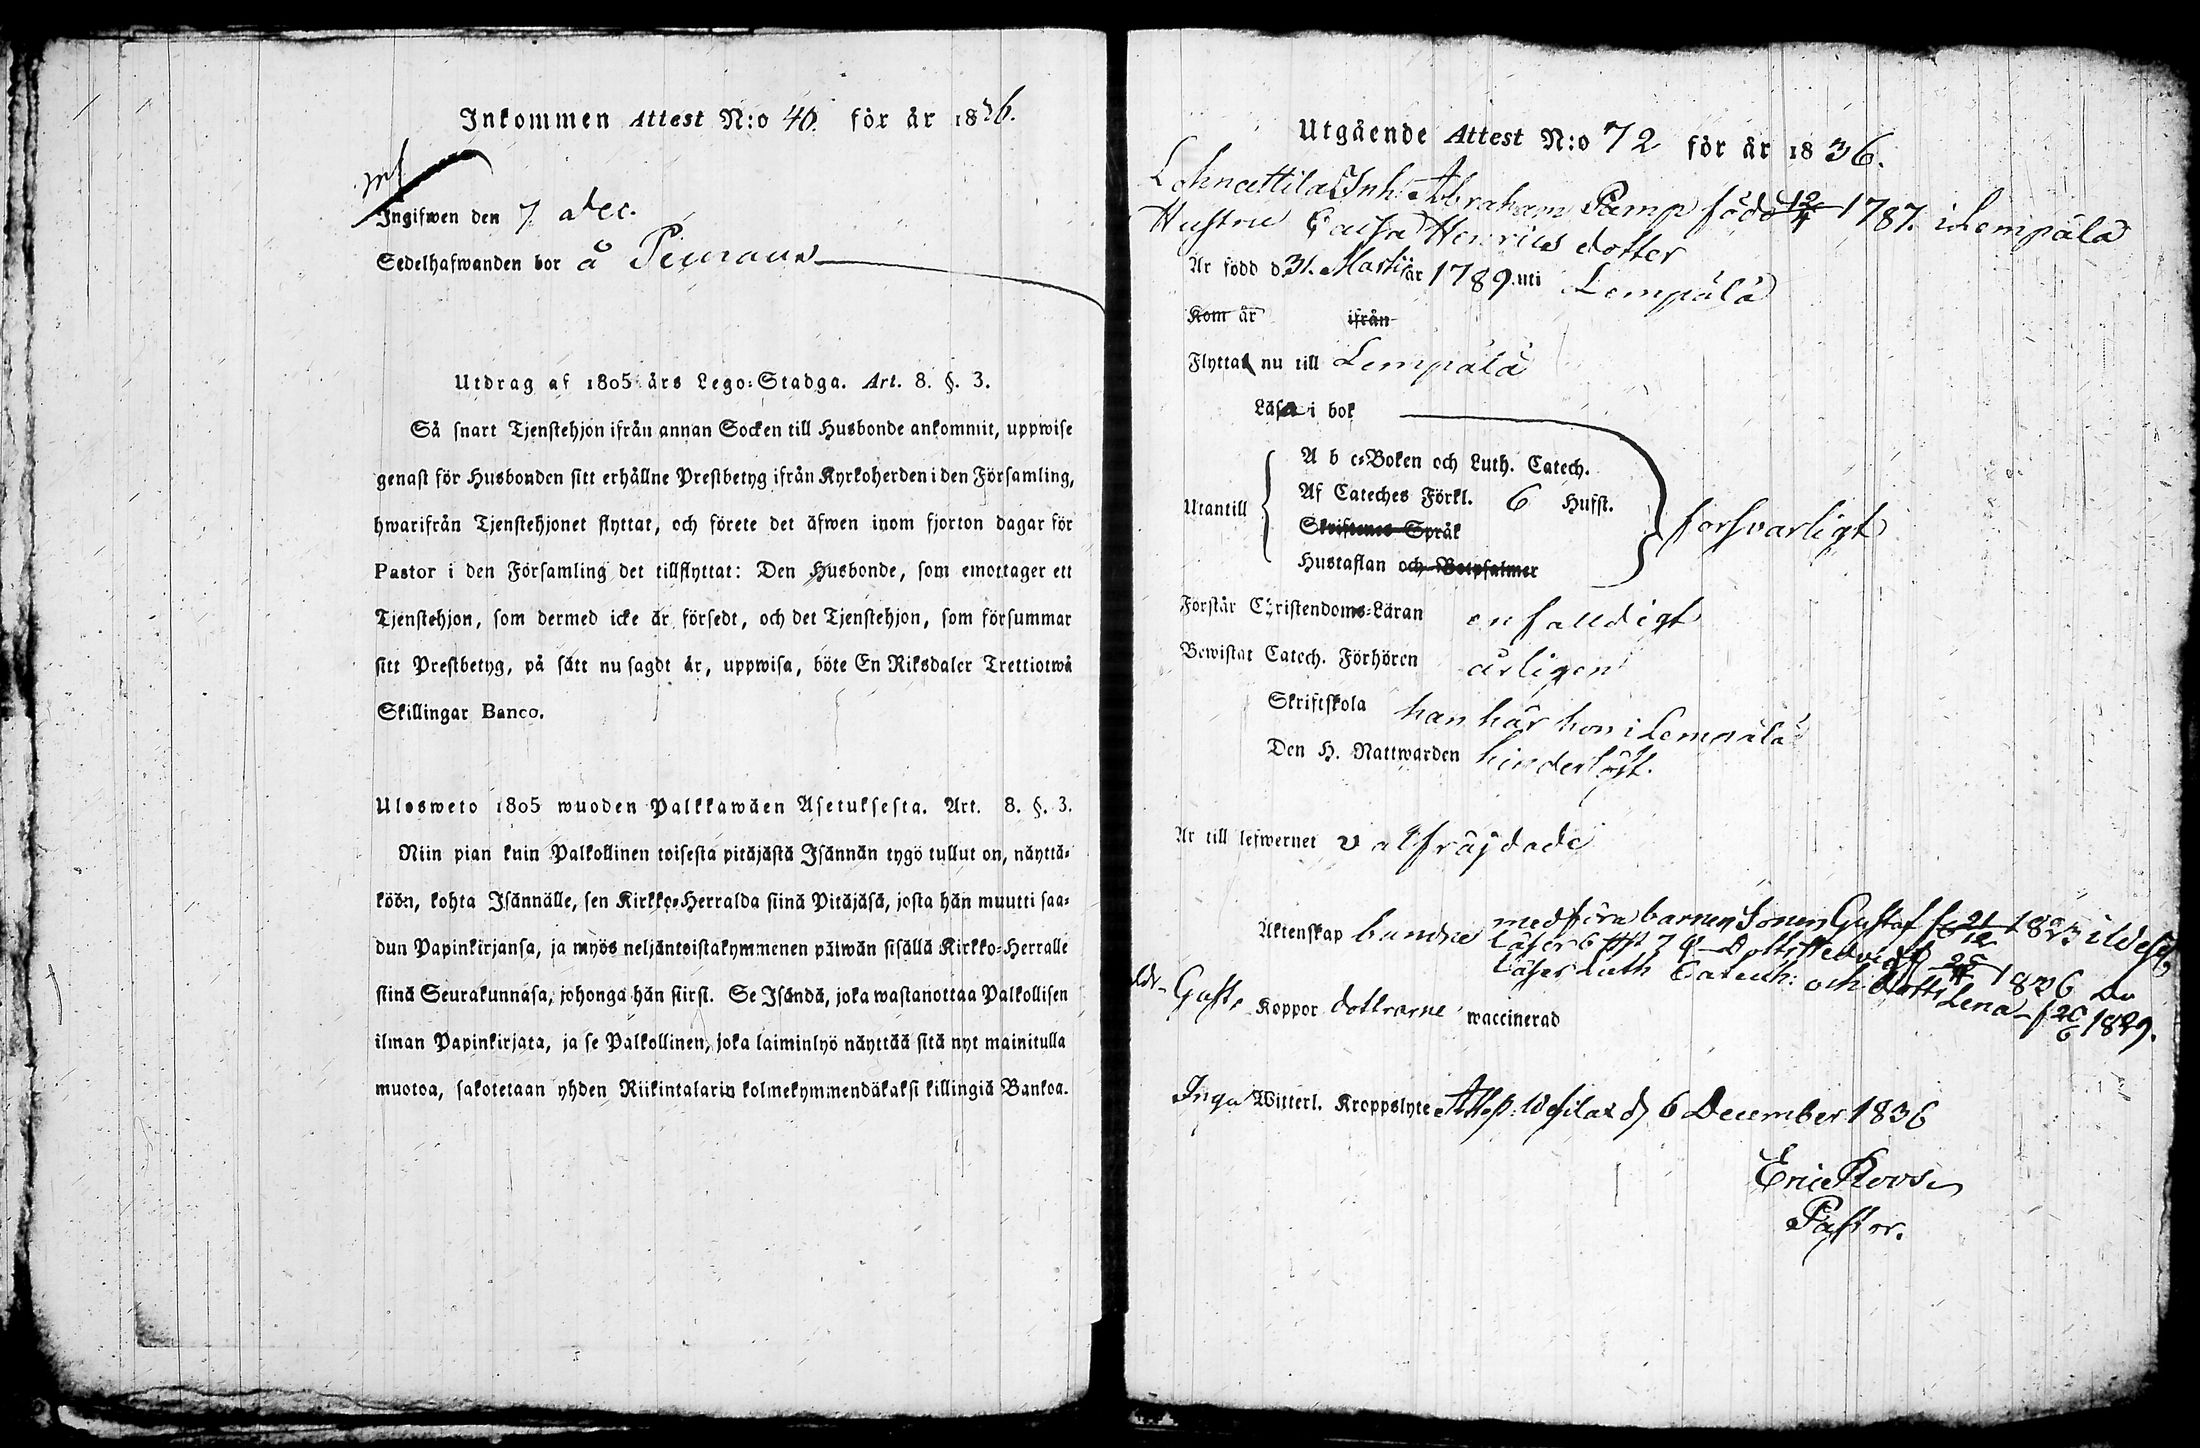 Inkommen Attest N:o 40. för år 1836.
Ingifwen den 7 Dec.
Sedelhafwanden bor å
Utdrag af 1805 års Lego-Stadga. Art. 8. §. 3.
Så snart Tjenstehjon ifrån annan Socken till Husbonde ankommit, uppwise
genast för Husbonden sitt erhållne Prestbetyg ifrån Kyrkoherden i den Församling,
hwarifrån Tjenstehjonet flyttat, och förete det äfwen inom fjorton dagar för
Pastor i den Församling det tillflyttat: Den Husbonde, som emottager ett
Tjenstehjon, som dermed icke är försedt, och det Tjenstehjon, som försummar
sitt Prestbetyg, på sätt nu sagdt är, uppwisa, böte En Riksdaler Trettiotwå
Skillingar Banco.
Ulosweto 1805 wuoden Palkkawäen Asetuksesta. Art. 8. §. 3.
Niin pian kuin Palkollinen toisesta pitäjästä Isännän tygö tullut on, näyttä-
köön, kohta Isännälle, sen Kirkko-Herralda siinä Pitäjäsä, josta hän muutti saa-
dun Papinkirjansa, ja myös neljäntoistakymmenen päiwän sisällä Kirkko-Herralle
siinä Seurakunnasa, johonga hän siirst. Se Isändä, joka wastanottaa Palkollisen
ilman Papinkirjata, ja se Palkollinen, joka laiminlyö näyttää sitä nyt mainitulla
muotoa, sakotetaan yhden Riikintalarin kolmekymmendäkaksi killingiä Bankoa.
Utgående Attest N:o 72 för år 1836.
Inh: Abraham Pamp född 12/4 1787. i Lempälä
Hustru Caisa Henrics dotter
Är född d. 31. Martii år 1789. uti Lempälä
Kom år ifrån
Flytta nu till Lempälä
Läsa i bok
Utantill
A b c-Boken och Luth. Catech.
Af Cateches Förkl. 6 Hufst.
Skriftenes Språk
Hustaflan och Botpsalmer
forsvarligt
Förstår Christendoms-Läran enfalldigt
Bewistat Catech. Förhören årligen
Skriftskola han här hon i Lempälä
Den H. Nattwarden hinderlöst.
Är till lefwernet välfräjdade
Äktenskap bundne medföra barnen Sonen Gustaf f 21/12 1823
läser 6 Hst 7 q Dottr Hedvig f 25/4 1826
läser Luth Catech: och Dottr Lena f 20/6 1829.
Gust. Koppor dottrarne waccinerad
Inga Witterl. Kroppslyte Attest: Wesilax d 6 December 1836
Eric Roos
Pastor.